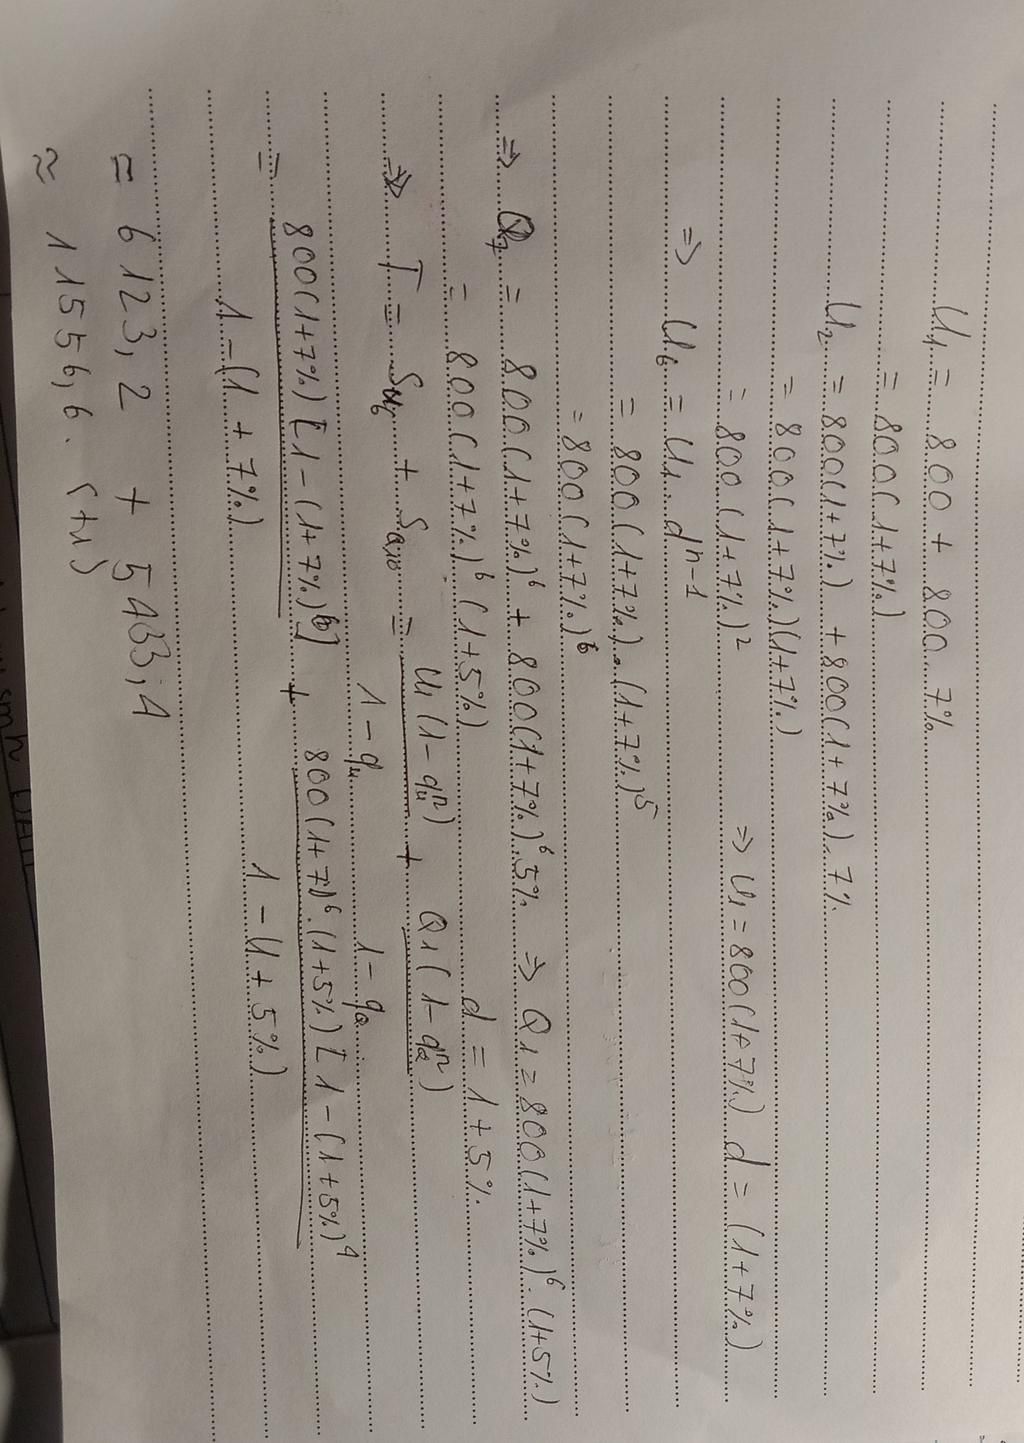 U1 = 800 + 800 . 7%
= 800(1+7%)
U2 = 800(1+7%) + 800(1+7%) . 7%
= 800(1+7%)(1+7%)
= 800(1+7%)² ⇒ U1 = 800(1+7%) d = (1+7%)
⇒ U6 = U1 . dⁿ⁻¹
= 800(1+7%) . (1+7%)⁵
= 800(1+7%)⁶
⇒ Q7 = 800(1+7%)⁶ + 800(1+7%)⁶ . 5% ⇒ Q1 = 800(1+7%)⁶ . (1+5%)
= 800(1+7%)⁶ (1+5%) d = 1+5%
⇒ T = Su6 + Sa10 = U1(1 - quⁿ) + Q1(1 - qaⁿ)
1 - qu 1 - qa
= 800(1+7%)[1-(1+7%)⁶] + 800(1+7%)⁶.(1+5%)[1-(1+5%)⁴
1-(1+7%) 1-(1+5%)
= 6123,2 + 5433,4
≈ 11556,6.